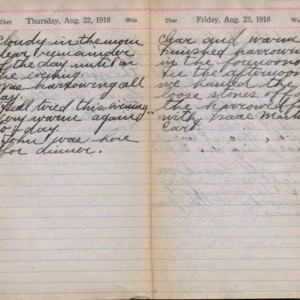 Ther Thursday, Aug. 22, 1918 Wea
Cloudy in the morn
clear remainder
of the day until in
the evening.
Was harrowing all
day.
tired this evening
very warm again
to day.
John was here
for dinner.
Ther Friday, Aug. 23, 1918 Wea
Clear and warm
Finished harrowing
in the forenoon
In the afternoon
we hauled the
loose stones off of
the harrowed field
with Isaac
Cart.